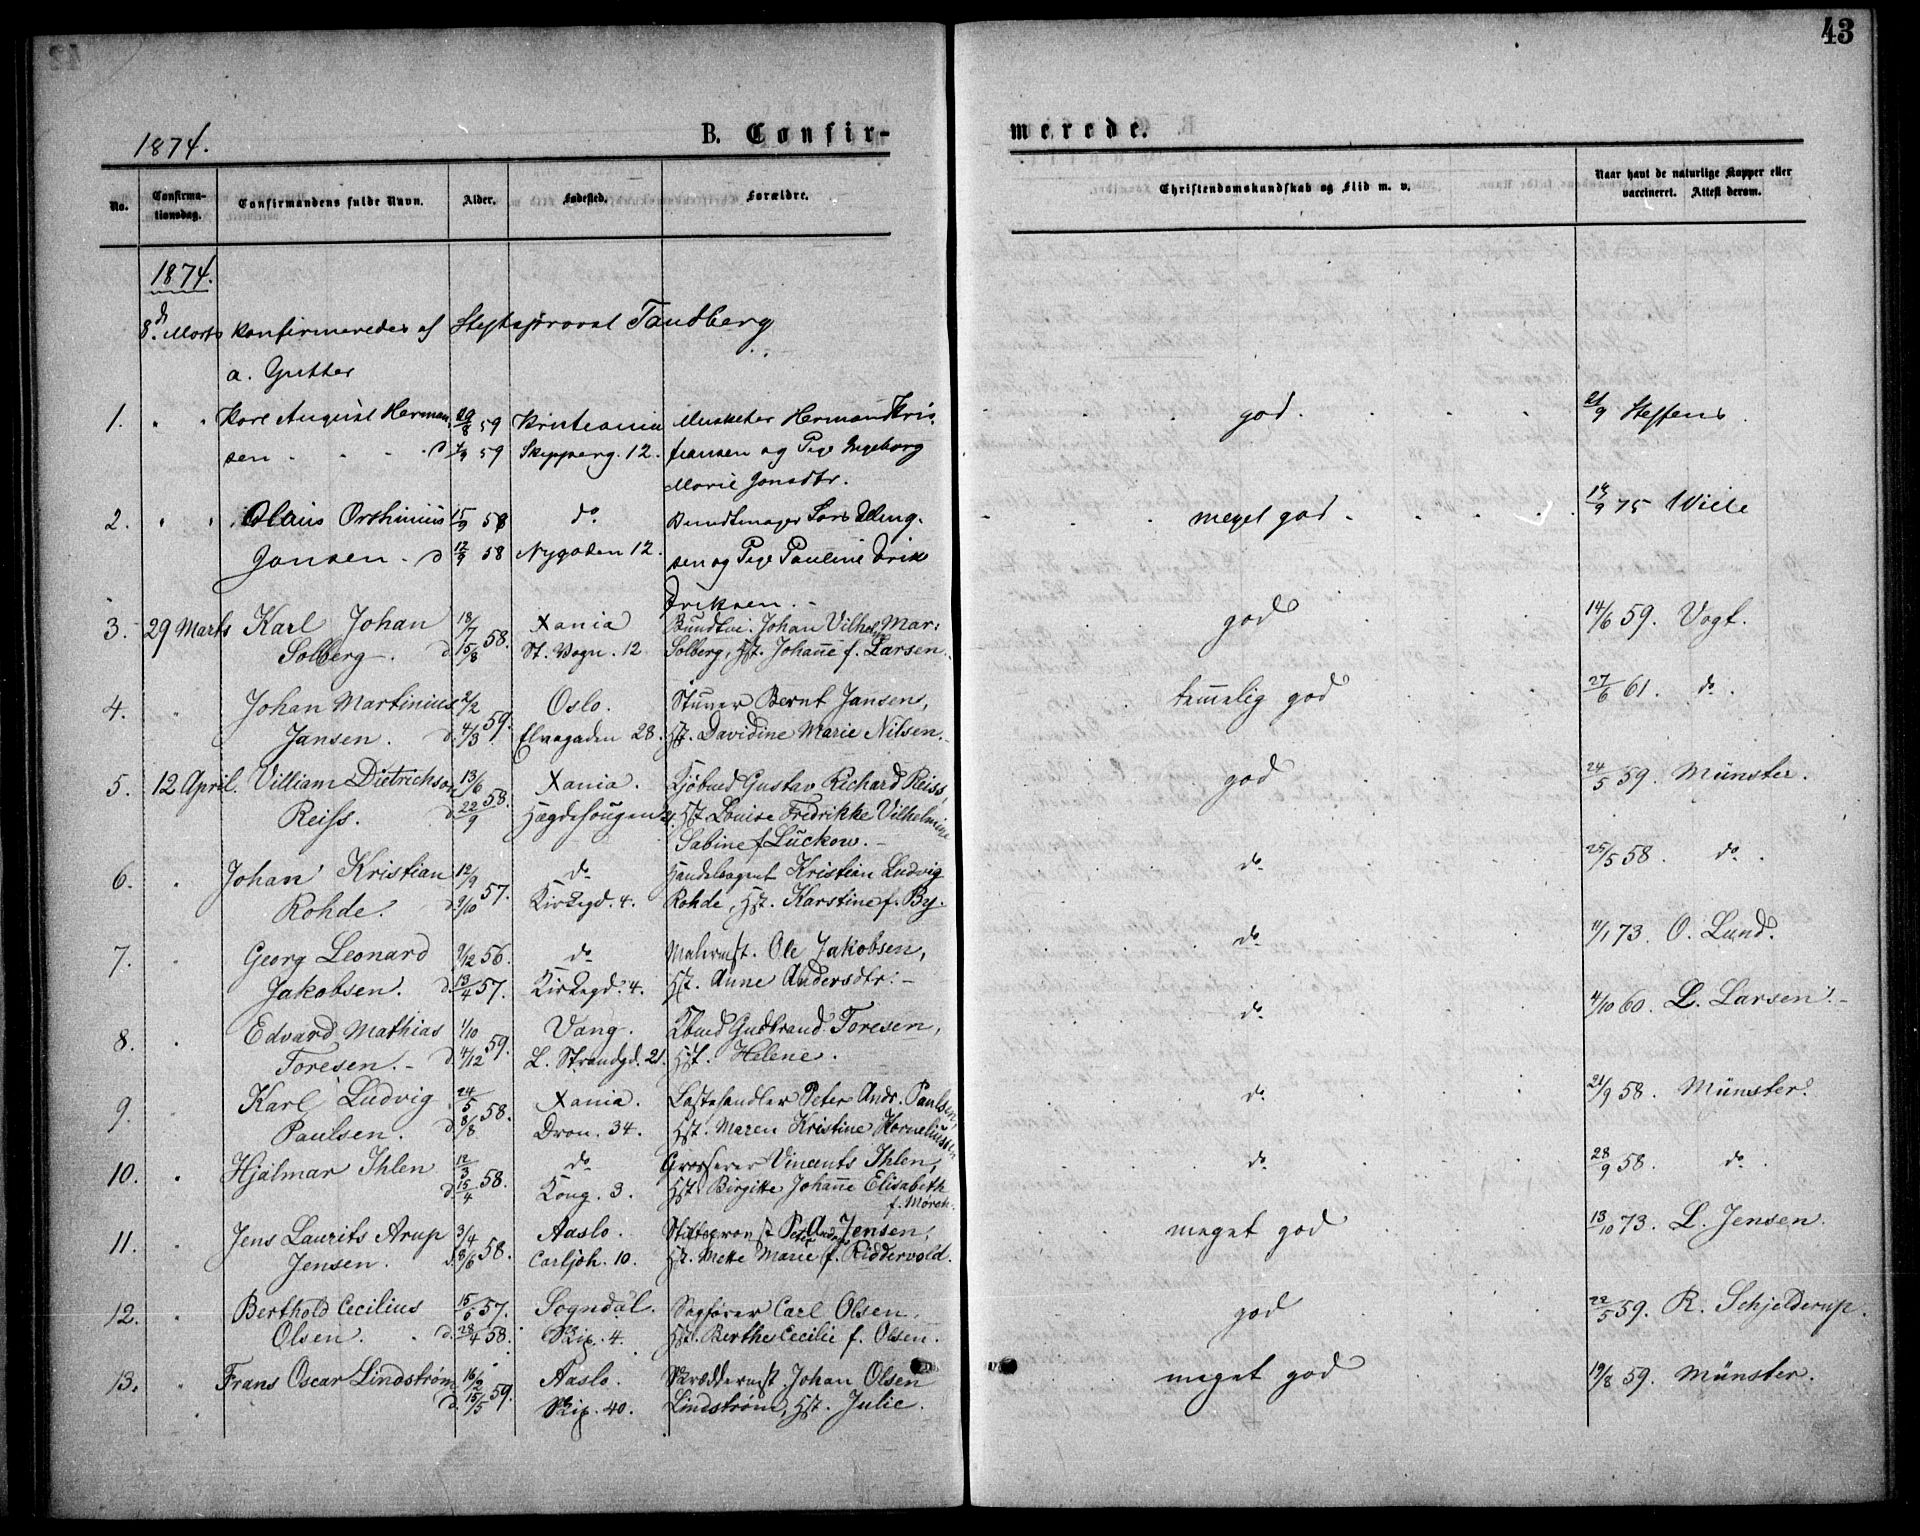 43
1874.
B. Confir-
merede.
No.
Confirma-
tionsdag.
Confirmandens fulde Navn.
Alder.
Fødested.
Forældre.
Christendomskundskab og Flid m. v.
Naar havt de naturlige Kopper eller
vaccineret. Attest derom.
1874.
8d. Marts konfirmeredes af Stiftsprovst Tandberg
a. Gutter
1. " " Karl August Herman 29/8 59 Kristiania Musketer Herman Kris- god. 21/9 Steffens
sen d 59 Skipperg. 12. tiansen og Pige Ingeborg
Marie Jonsdtr.
2. " " Olaus Orthinius 15/9 58 do Bundtmager Lars Elling- meget god 14/9 75 Wiele
Jansen - d 12/9 58 Nygaden 12. sen og Pige Pauline Erik
Eriksen. -
3. 29 Marts Karl Johan 18/7 58. Xania Bundtm. Johan Vilhelm Mar: god 14/6 59. Vogt.
Solberg. d. 15/8 St. Vogn. 12 Solberg, Hst. Johanne f. Larsen.
4. " Johan Martinius 2/2 59. Oslo. Stuver Bernt Jansens, temmelig god 27/6 61. do.
Jansen. d. 4/3 Elvegaden 28. Hst. Davidine Marie Nilsen.
5. 12 April. Villiam Dietrichson 13/6 58. Xania. Kjøbmd Gustav Richard Reiss, god 24/5 59. Münster.
Reiss. d. 22/9 Hægdehaugen 21. Hst. Louise Fredrikke Vilhelmine
Sabine f. Luckow. -
6. " Johan Kristian 12/9 57. do Handelsagent Kristian Ludvig do 25/5 58. do.
Rohde. d. 9/10 Kirkegd. 4. Rohde, Hst. Karstine f. By.
7. " Georg Leonard 9/12 56. do Malermst. Ole Jakobsen, do 11/1 73. O. Lund.
Jakobsen. d. 13/4 57. Kirkegd. 4. Hst. Anne Andersdtr. -
8. " Edvard Mathias 1/10 59. Vang. Kbmd Gudbrand Toresen, do 4/10 60. L. Larsen. -
Toresen. - d. 4/12 L. Strandgd. 21. Hst. Helene.
9. " Karl Ludvig 24/5 58. Xania. Lastehandler Peter Andr. Paulsen, do 21/9 58. Münster.
Paulsen. d. 8/8 Dron. 34. Hst. Maren Kristine Korneliussen
10. " Hjalmar Ihlen 12/3 58. do Grosserer Vincents Ihlen, do 28/9 58. do.
d. 15/4 Kong. 3. Hst. Birgitte Johanne Elisabeth
f. Mørch.
11. " Jens Laurits Arup 3/4 58. Aaslo. Stiftsprovst Peter Andreas Jensen, meget god 13/10 73. L. Jensen.
Jensen. d. 8/6 Carljoh. 10. Hst. Mette Marie f. Riddervold.
12. " Berthold Cecilius 15/6 57. Sogndal. Sagfører Carl Olsen. god 22/5 59. R. Schjelderup.
Olsen. d. 28/4 58. Skip. 4. Hst. Berthe Cecilie f. Olsen.
13. " Frans Oscar Lindstrøm 16/2 59. Aaslo. Skræddermst Johan Olsen meget god 19/8 59. Münster.
d. 15/5 Skip. 40. Lindstrøm, Hst. Julie.